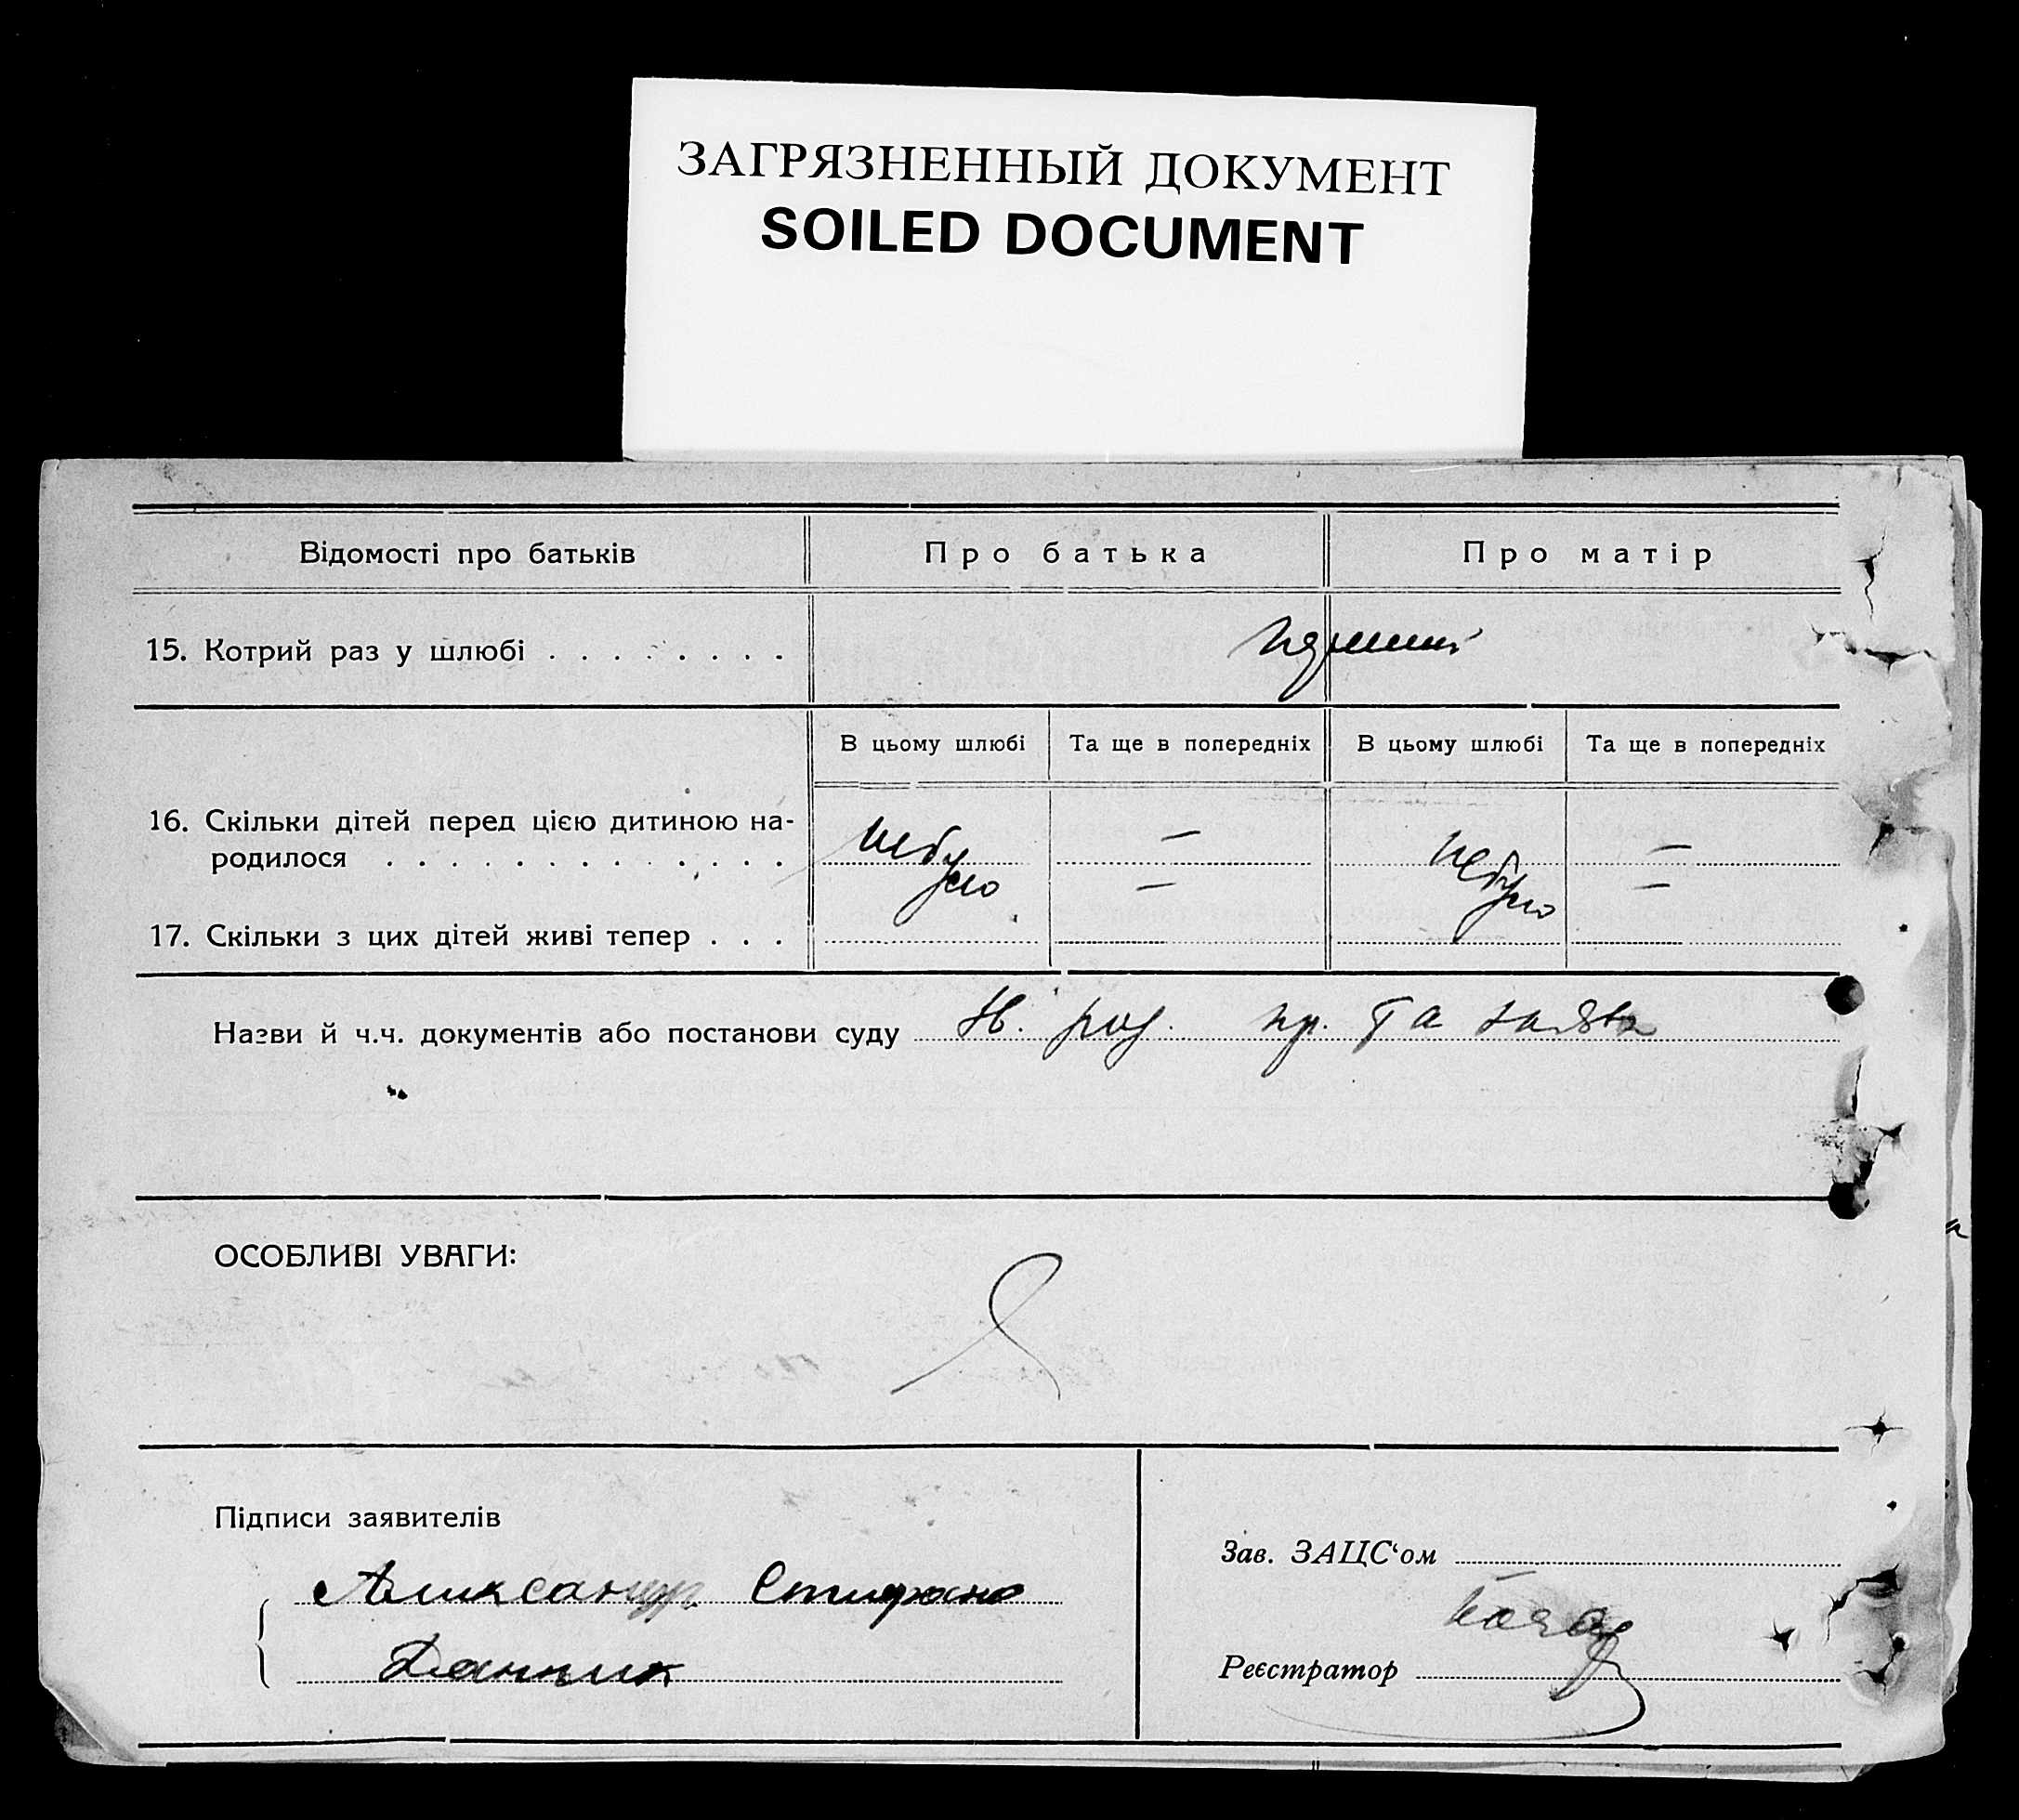 ЗАГРЯЗНЕННЫЙ ДОКУМЕНТ
SOILED DOCUMENT
Відомості про батьків
Про батька
Про матір
15. Котрий раз у шлюбі . . . . . . . .
В цьому шлюбі
Та ще в попередніх
В цьому шлюбі
Та ще в попередніх
16. Скільки дітей перед цією дитиною на-
родилося . . . . . . . . . . . . .
небу
—
небу
—
ло
—
ло
—
17. Скільки з цих дітей живі тепер . . .
Назви й ч.ч. документів або постанови суду Н. та заява
ОСОБЛИВІ УВАГИ:
Підписи заявителів
Зав. ЗАЦС‘ом
Реєстратор